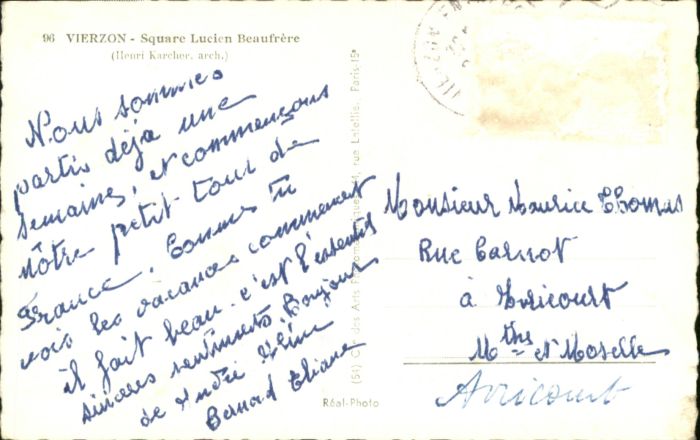 96 VIERZON - Square Lucien Beaufrère
(Henri Karcher, arch.)
Nous sommes
partis déjà une
semaine, et commençons
nôtre petit tour de
France, Comme tu
vois les vacances commencent
il fait beau. c'est l'essentiel
sincères sentiments. Bonjour
de André
Bernard Eliane
Monsieur Maurice Thomas
Rue Carnot
à
Mthe et Moselle
Avricourt
Réal-Photo
des Arts rue Latellie, Paris-15e